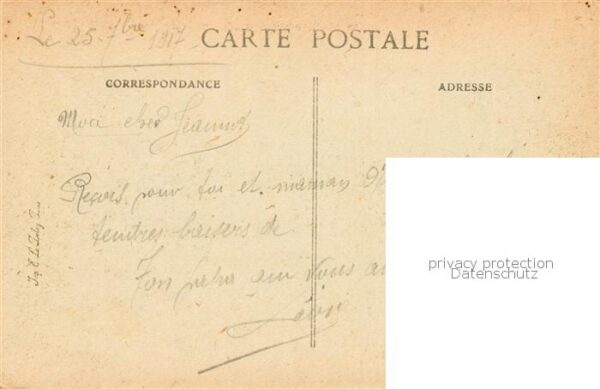 Le 25 7bre 1917
CARTE POSTALE
CORRESPONDANCE
ADRESSE
Mon cher Jeannot
Reçois pour toi et maman
tendres baisers de
Ton papa qui vous
privacy protection
Datenschutz